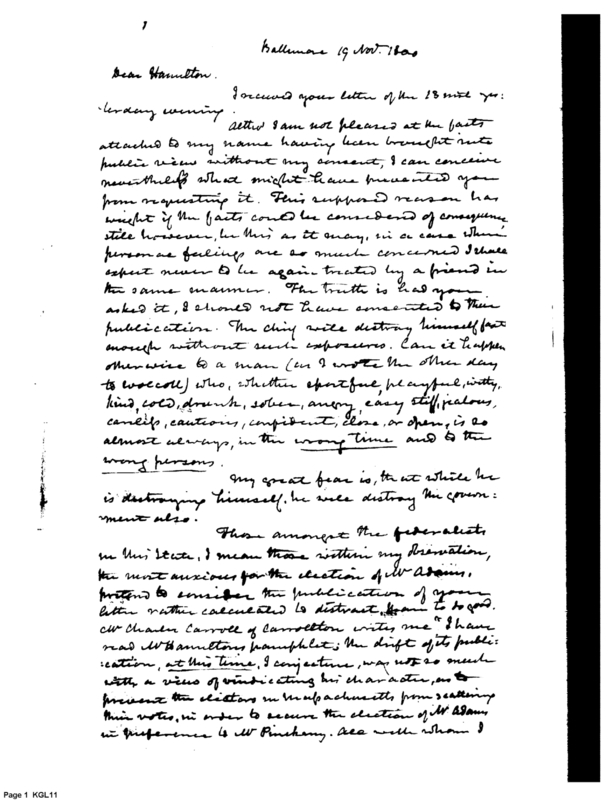 1
Baltimore 19 Nov. 1800
Dear Hamilton.
I received your letter of the 13 inst yes:
:terday evening.
Altho' I am not pleased at the facts
attached to my name having been brought into
public view without my consent, I can conceive
nevertheless what might have prevented you
from requesting it. This supposed reason has
weight if the facts could be considered of consequence
still however, be this as it may, in a case where
personal feelings are so much concerned I shall
expect never to be again treated by a friend in
the same manner. The truth is had you
asked it, I should not have consented to their
publication. The chief will destroy himself fast
enough without such exposures. Can it happen
otherwise to a man (as I wrote the other day
to Wolcott) who, whether sportful, playful, witty,
kind, cold, drunk, sober, angry, easy stiff, jealous,
careless, cautious, confident, close, or open, is so
almost always, in the wrong time and to the
wrong persons.
My great fear is, that while he
is destroying himself, he will destroy the govern:
:ment also.
Those amongst the federalists
in this State, I mean those within my observation,
the most anxious for the election of Mr Adams,
pretend to consider the publication of your
letter rather calculated to distract, than to do good.
Mr Charles Carroll of Carrollton writes me "I have
read Mr Hamiltons pamphlet; the drift of its publi:
:cation, at this time, I conjecture, was not so much
with a view of vindicating his character, as to
prevent the electors in Massachusetts from scattering
their votes, in order to secure the election of Mr Adams
in preference to Mr Pinckeny. All with whom I
Page 1 KGL11